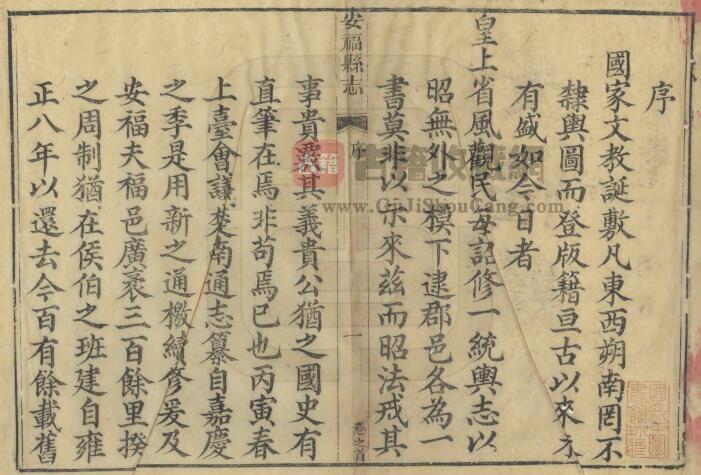 序
國家文教誕敷凡東西朔南罔不
隸輿圖而登版籍亘古以來未
有盛如今日者
皇上省風觀民毋詔修一統輿志以
昭無外之模下逮郡邑各為一
書莫非以示來茲而昭法戒其
安福縣志
序
一
卷之首
事貴覈其義貴公猶之國史有
直筆在焉非苟焉已也丙寅春
上臺會議芟南通志纂自嘉慶
之季是用新之通檄續修爰及
安福夫福邑廣袤三百餘里揆
之周制猶在侯伯之班建自雍
正八年以還去今百有餘載舊
古籍收藏網
www.GuJiShouCang.com